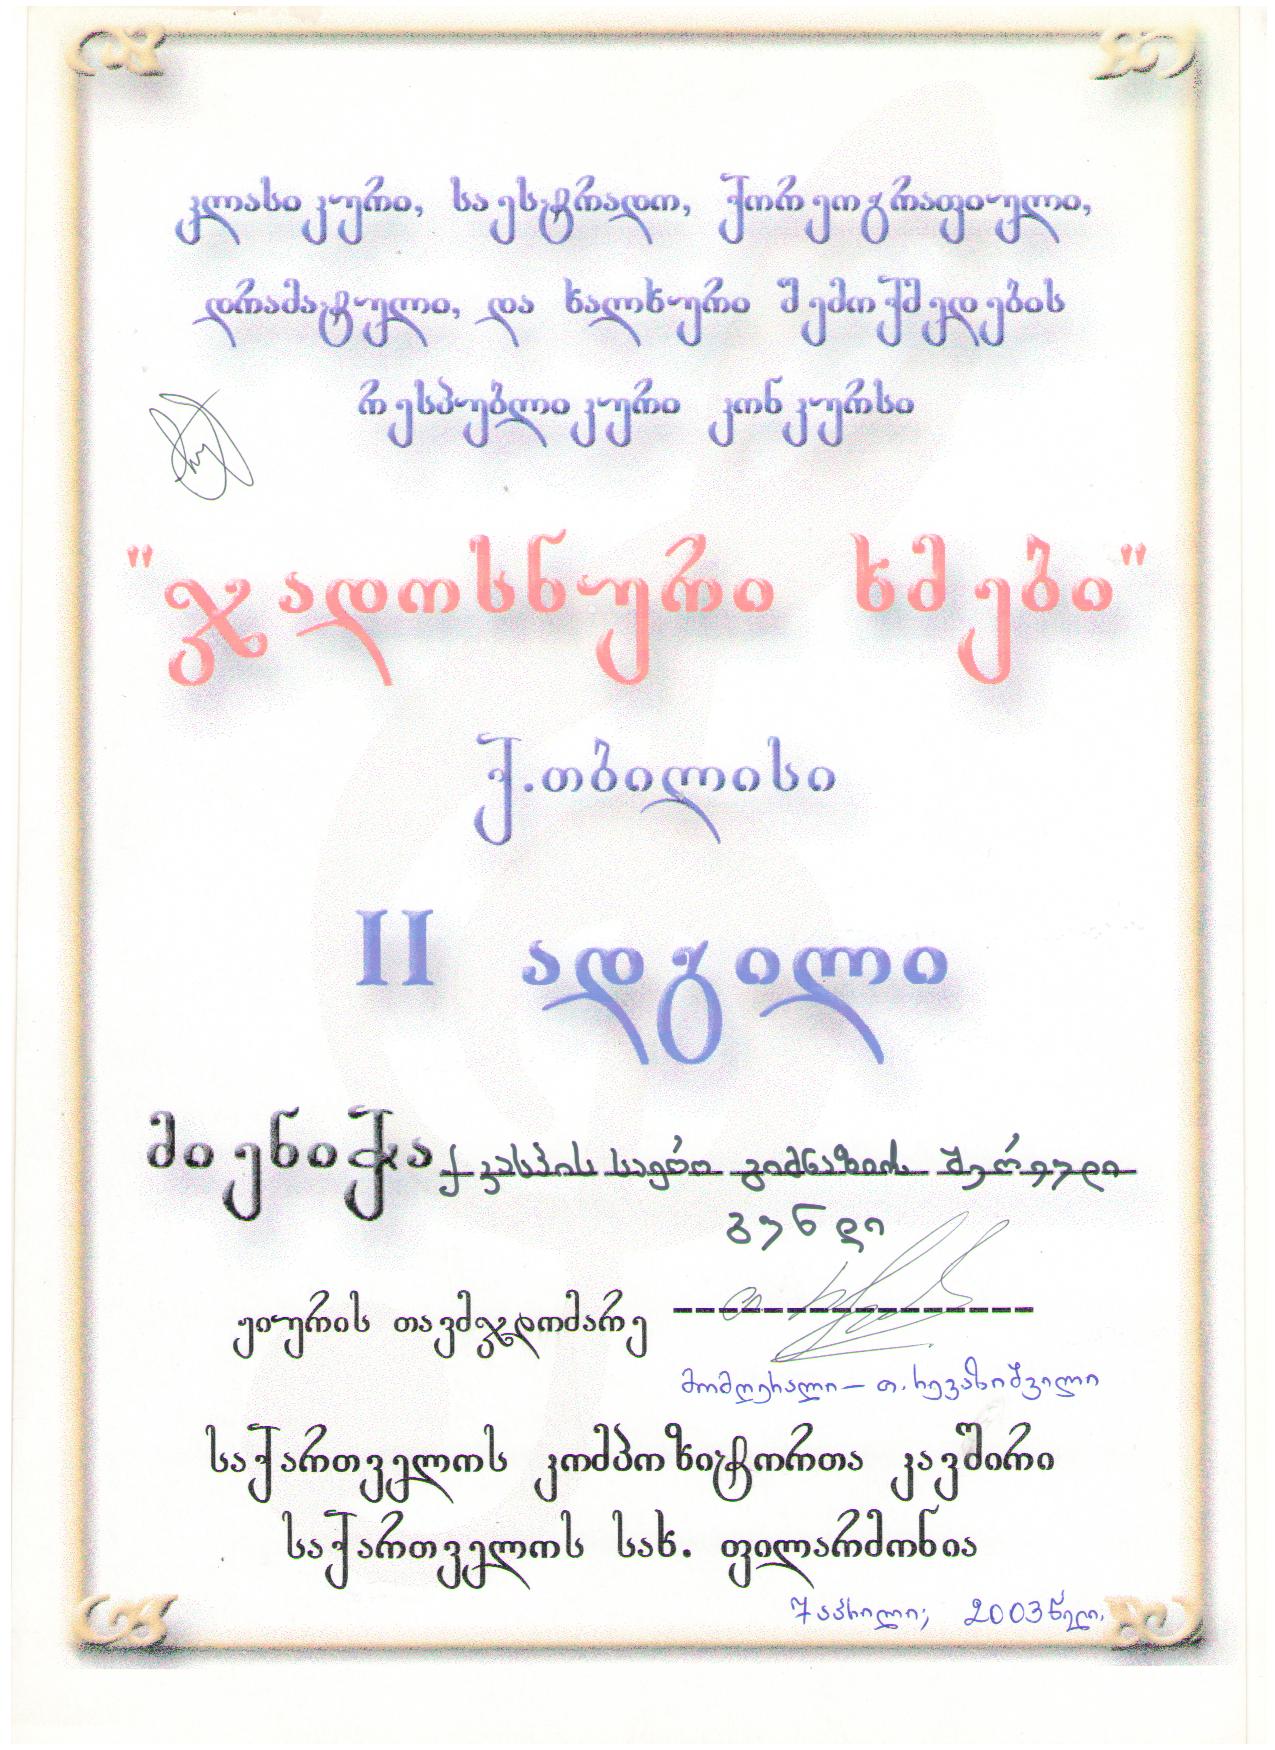 კლასიკური, საესტრადო, ქორეოგრაფიული,
დრამატული, და ხალხური შემოქმედების
რესპუბლიკური კონკურსი
"ჯადოსნური ხმები"
ქ.თბილისი
II ადგილი
მიენიჭა ქ კასპის საერო გიმნაზიის შერეული
გუნდი
ჟიურის თავმჯდომარე
მომღერალი – თ. რევაზიშვილი
საქართველოს კომპოზიტორთა კავშირი
საქართველოს სახ. ფილარმონია
7 აპრილი; 2003 წელი.